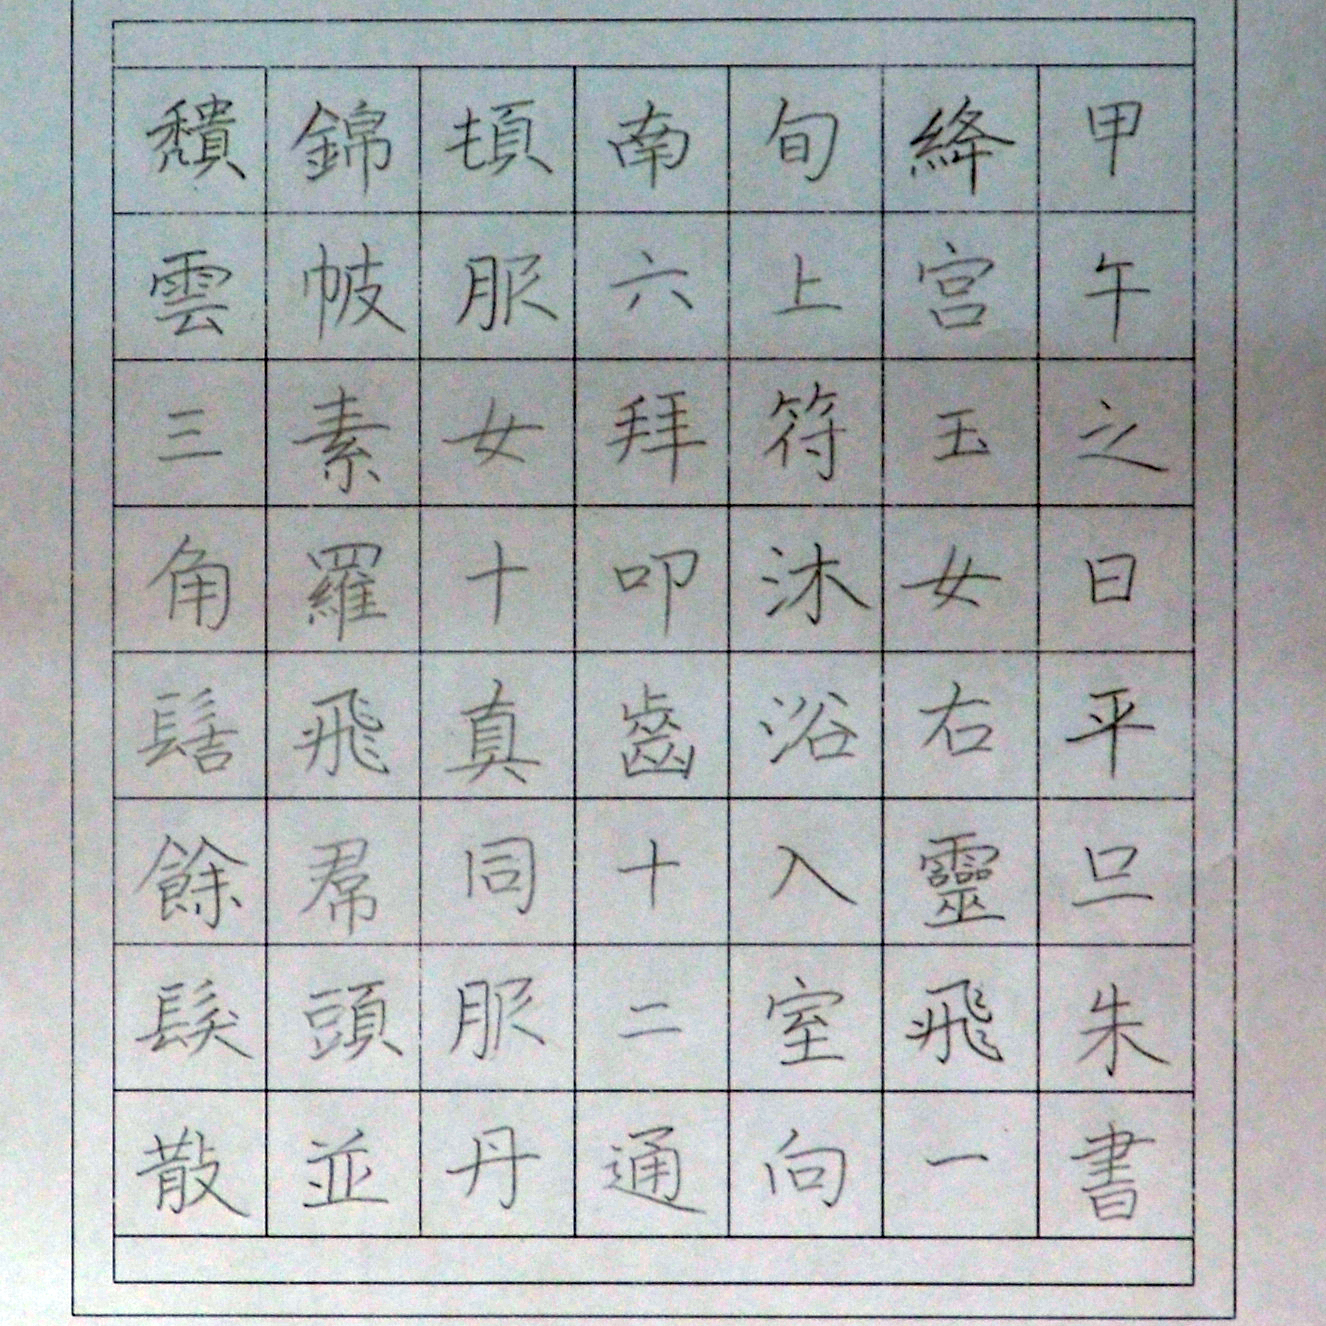 甲午之日平旦朱書
絳宮玉女右靈飛一
旬上符沐浴入室向
南六拜叩齒十二通
頓服女十真同服丹
錦帔素羅飛帬頭並
穨雲三角髻餘髮散